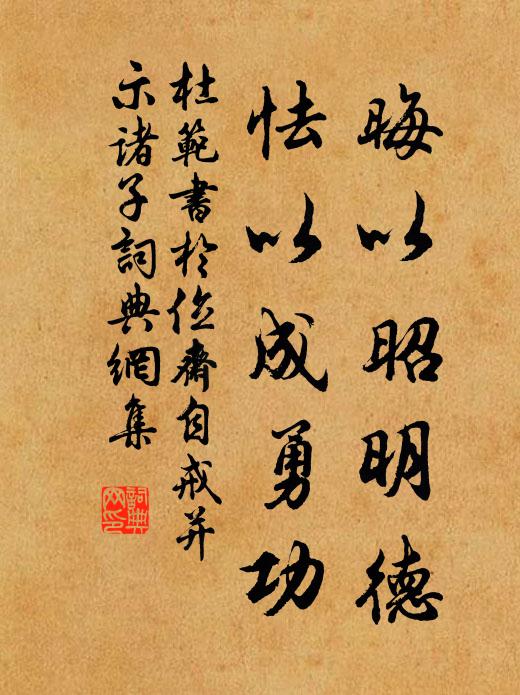 晦以昭明德
怯以成勇功
杜範書於位齋自戒并
示诸子詞典網集
詞典
网印